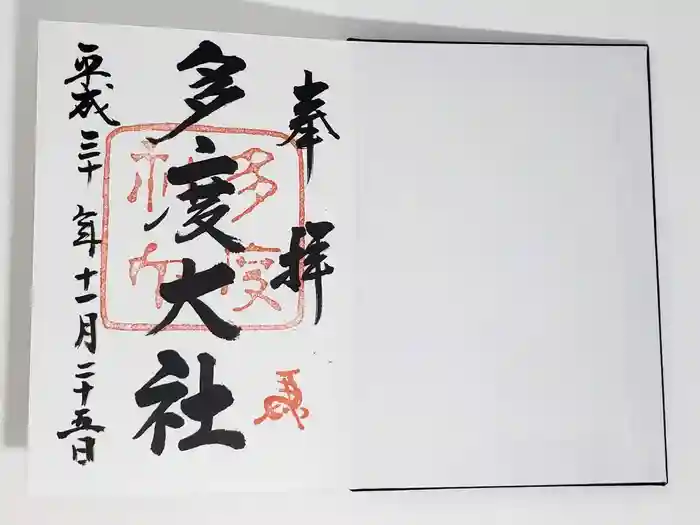 奉拝
多度大社
平成三十年十一月二十五日